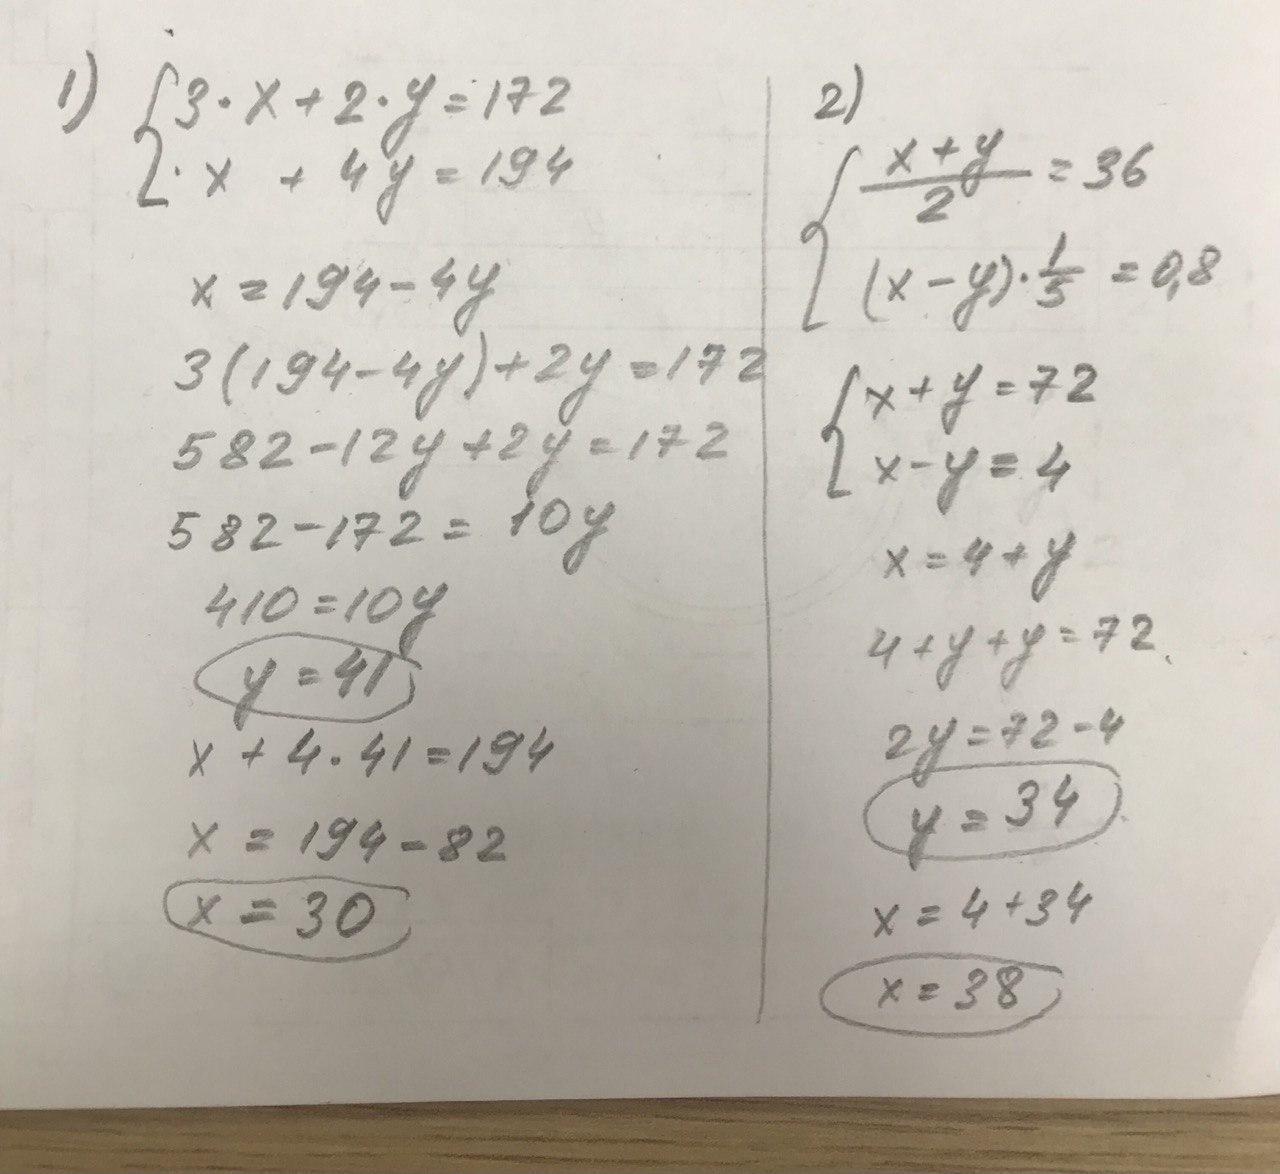 1)
3·x+2·y=172
x + 4y=194
x=194-4y
3(194-4y)+2y=172
582-12y+2y=172
582-172=10y
410=10y
y=41
x+4·41=194
x=194-82
x=30
2)
(x+y)/2=36
(x-y)·1/5=0,8
x+y=72
x-y=4
x=4+y
4+y+y=72
2y=72-4
y=34
x=4+34
x=38